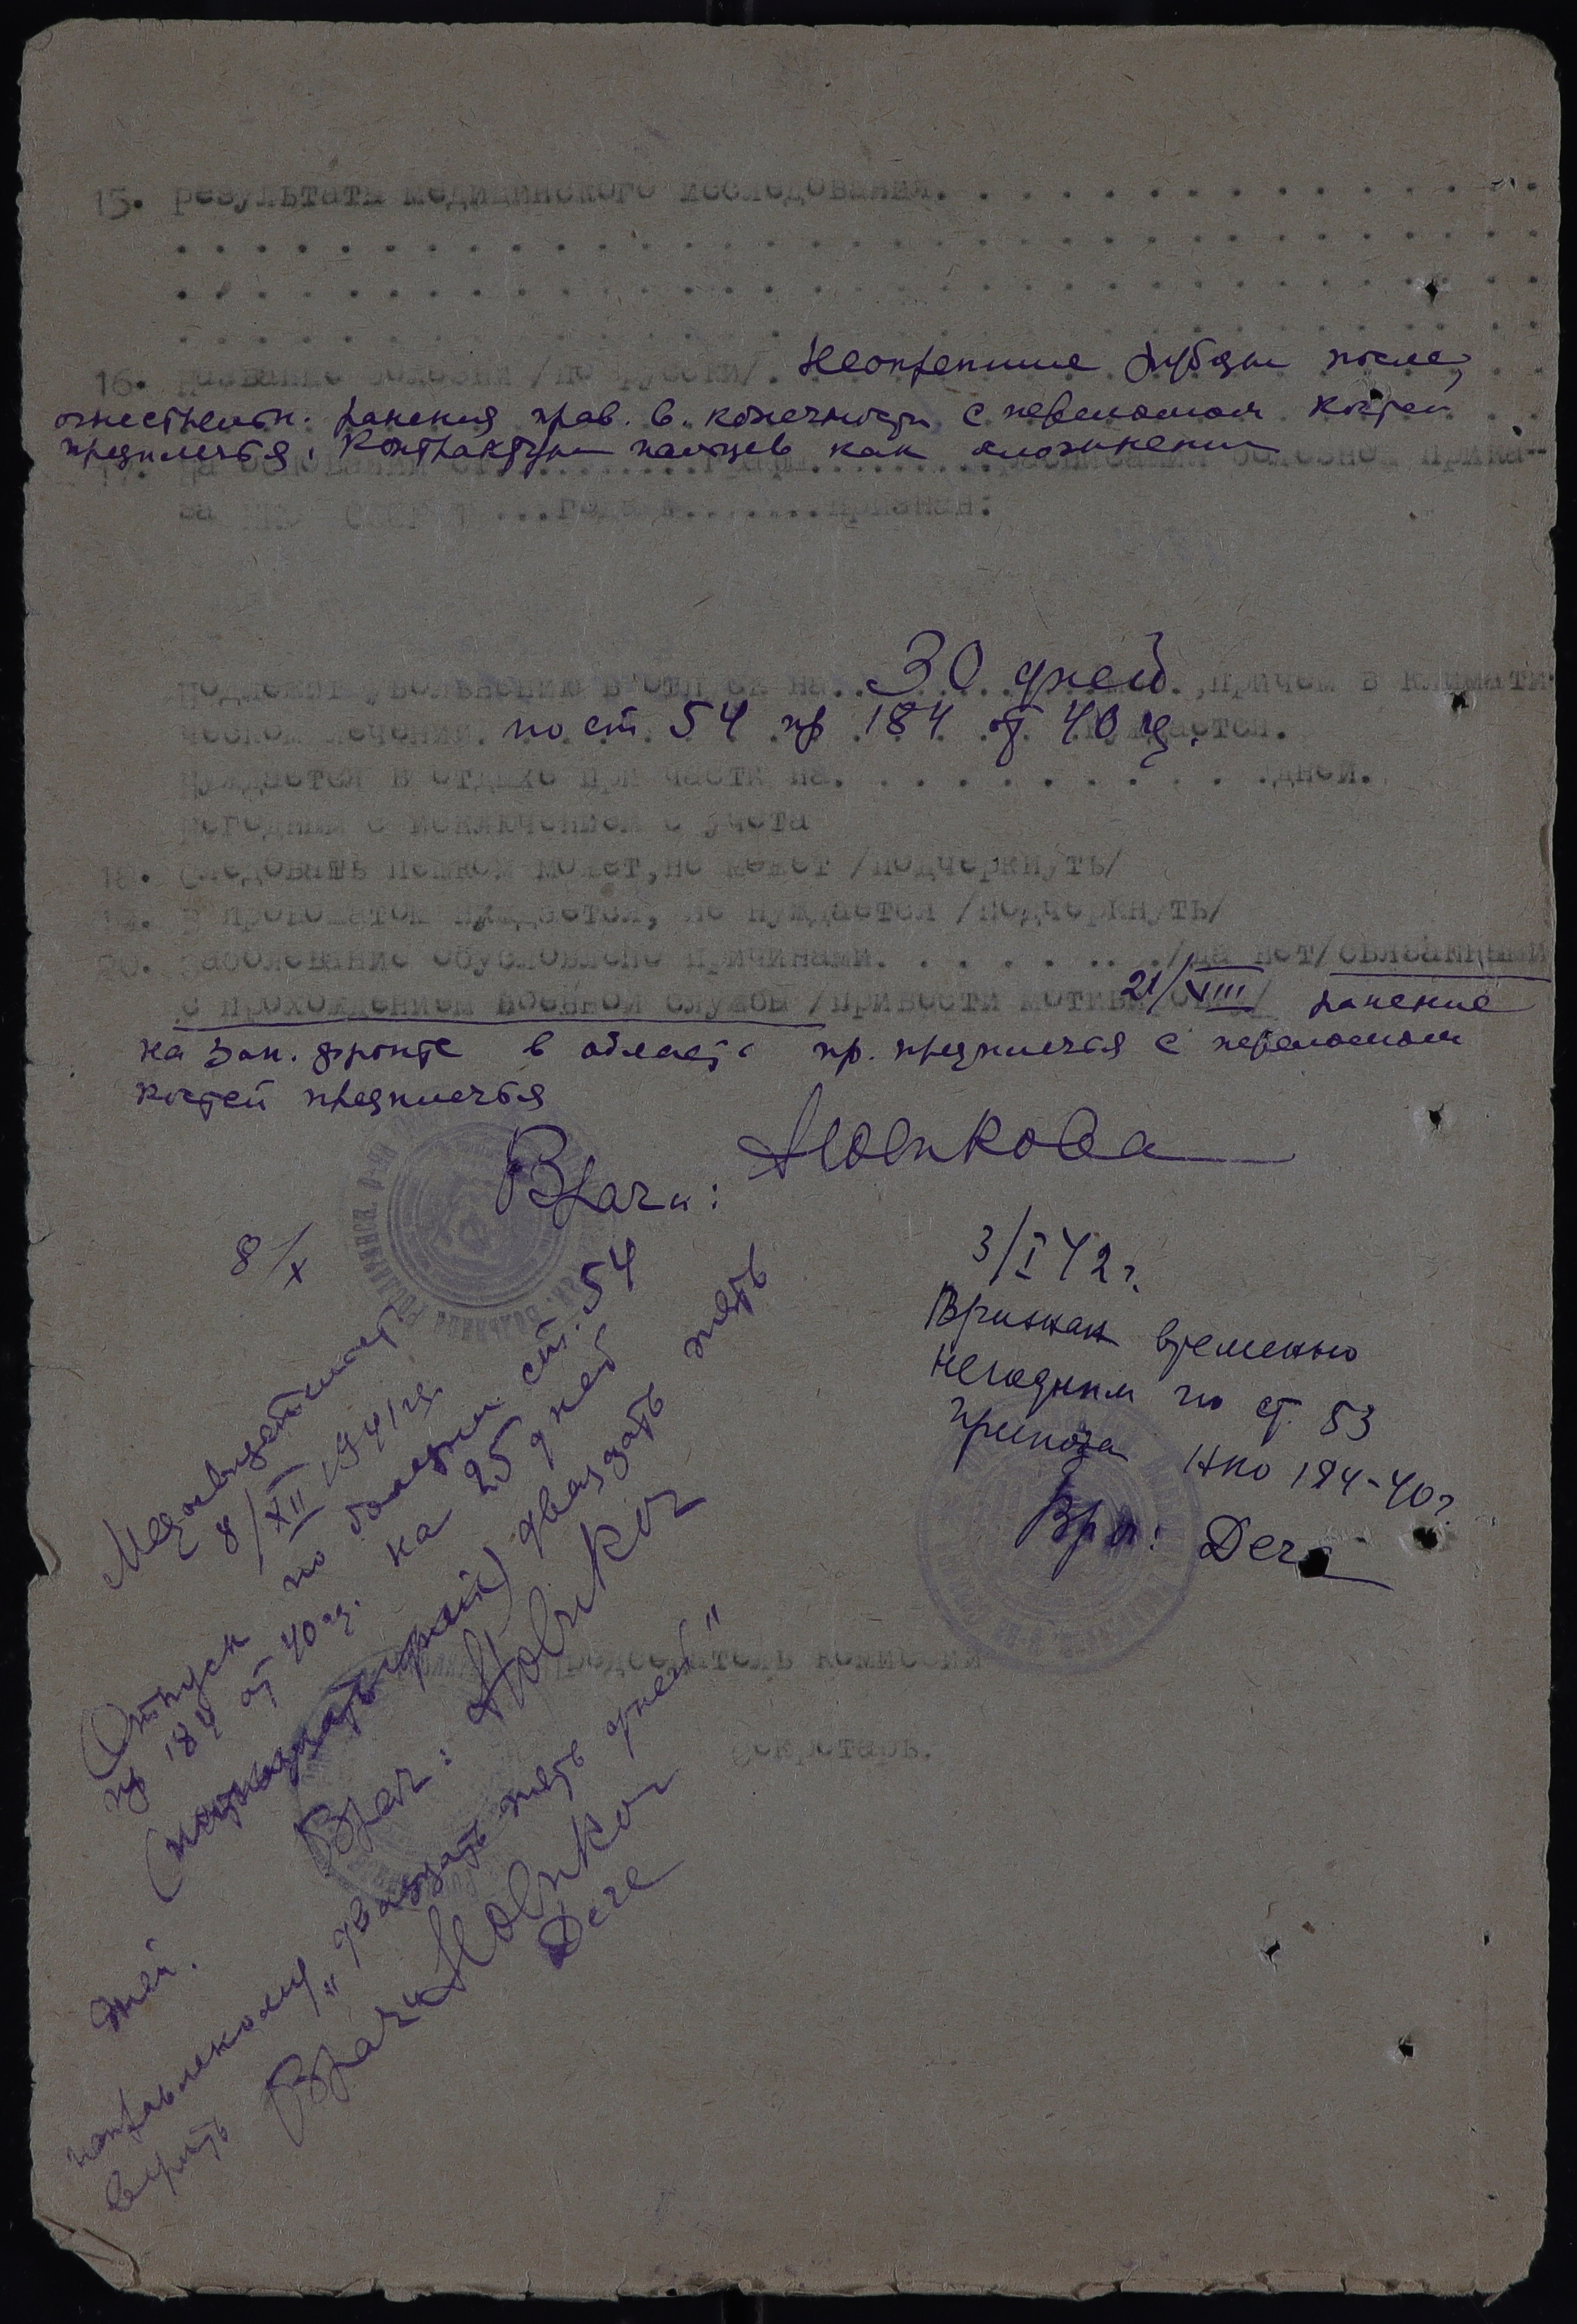 15. Результаты медицинского исследования. . . . . . . . . . . . . . .
16. Название болезни /по русски/. Неокрепшие рубцы после
огнестрельн. ранения прав. в. конечности с переломом костей
предплечья, контрактуры пальцев как осложнение
17. На основании ст. . . . . . . . графы. . . . . . . . . расписания болезней прика-
за НКО СССР 1 ...года №. . . . . . . признан:
Подлежит увольнению в отпуск на. . 30 дней . ,причем в климати-
ческом лечении. по ст 54 пр 184 от 40 г. нуждается.
Нуждается в отдыхе при части на. . . . . . . . . . . .дней.
Негодным с исключением с учета
18. Следовать пешком может, не может /подчеркнуть/
19. В провожатом нуждается, не нуждается /подчеркнуть/
20. Заболевание обусловлено причинами. . . . . . . . ./да нет/связанными
с прохождением военной службы /привести мотивы 21/VIII ранение
на Зап. фронте в области пр. предплечья с переломом
костей предплечья
Врачи: Новикова
8/X
3/I 42 г.
Признан временно
негодным по ст. 53
приказа НКО 184-40 г.
Врач: Дега
8/XII 1941 г.
Отпуск по болезни ст. 54
пр 184 от 40 г. на 25 дней
двадцать пять
Врач: Новиков
дней.
Председатель комиссии
Секретарь.
исправленному „двадцать пять дней"
верить
Врач Новиков
Деге